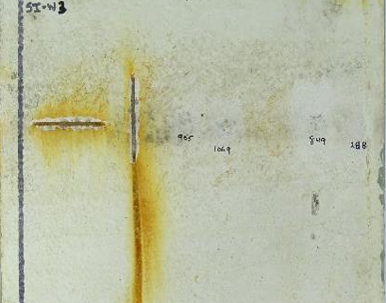 SI-W3
965
1069
849
288